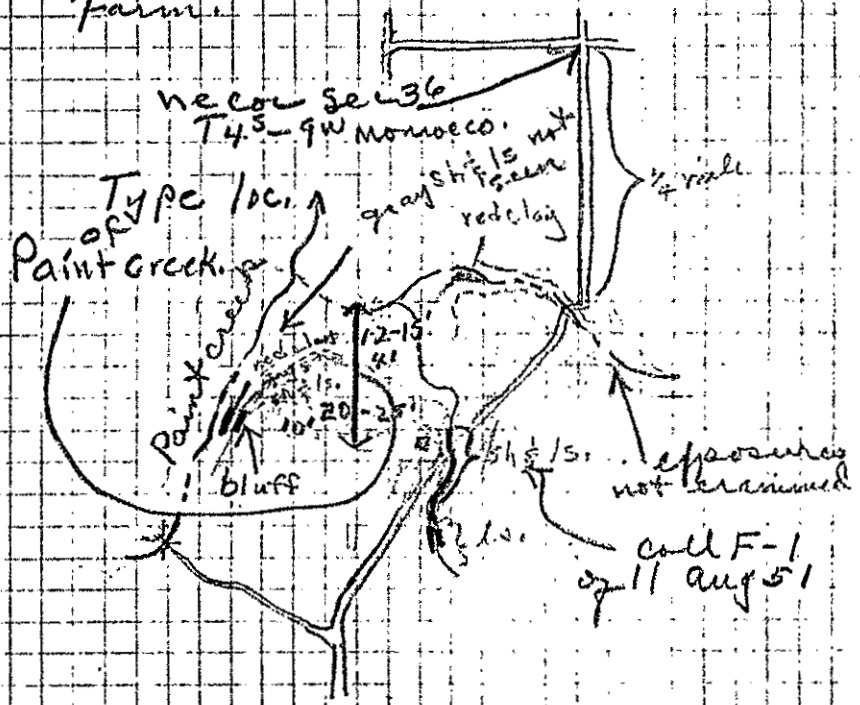 Farm.
ne cor sec 36
T4S-9W Monroe co.
gray sh & ls not
seen
red clay
1/4 mile
Type loc.
of
Paint Creek.
Paint Creek
red clay
sh & ls.
12-15'
4'
20-25'
10'
bluff
sh & ls.
ls.
exposures
not examined
coll F-1
of 11 Aug 51